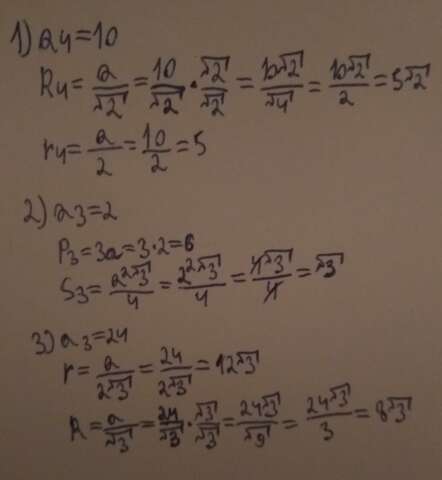 1) a₄=10
R₄=a/√2=10/√2·√2/√2=10√2/√4=10√2/2=5√2
r₄=a/2=10/2=5
2) a₃=2
P₃=3a=3·2=6
S₃=a²√3/4=2²√3/4=4√3/4=√3
3) a₃=24
r=a/2√3=24/2√3=12√3
R=a/√3=24/√3·√3/√3=24√3/√9=24√3/3=8√3